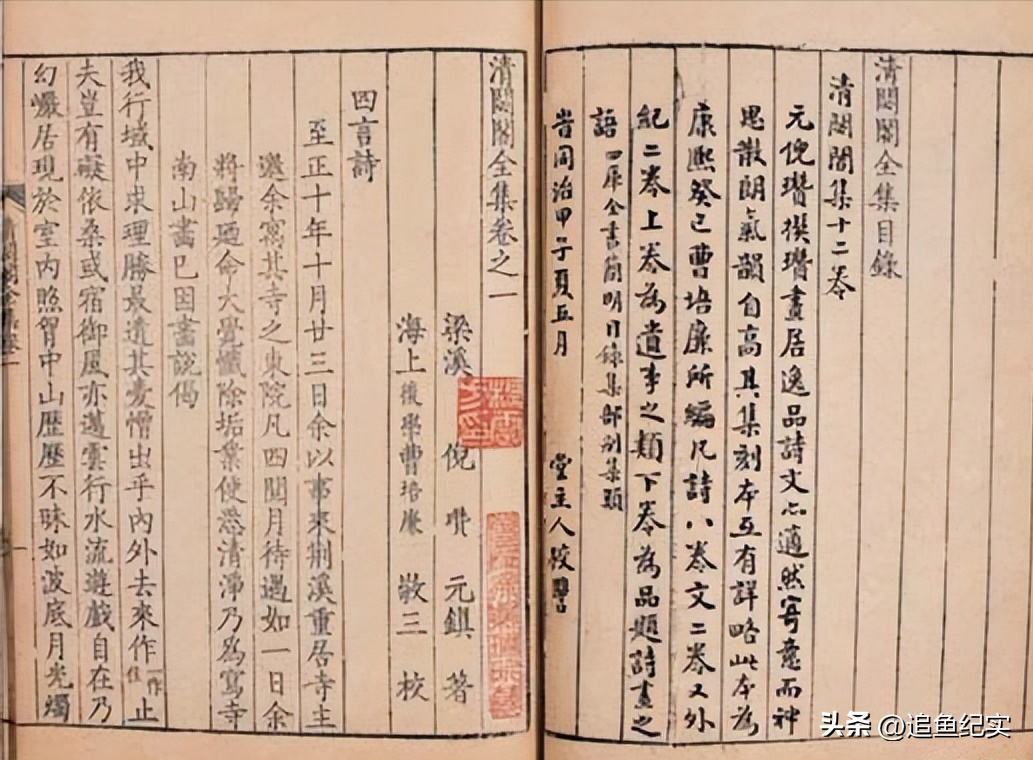 清閟閣全集目錄
清閟閣集十二卷
元倪瓚撰瓚畫居逸品詩文亦蕭然寄意而神
思散朗氣韻自高其集刻本互有詳略此本為
康熙癸巳曹培廉所編凡詩八卷文二卷又外
紀二卷上卷為遺事之類下卷為品題詩畫之
語 四庫全書簡明目錄集部別集類
時同治甲子夏五月 堂主人校讐
清閟閣全集卷之一
梁溪 倪瓚 元鎮 著
海上後學曹培廉 敬三 校
四言詩
至正十年十月廿三日余以事來荆溪重居寺主
邀余寓其寺之東院凡四閱月待遇如一日余
將歸題命大覺懺除垢業使悉清淨乃為寫寺
南山畫已因畫說偈
我行域中求理勝最遺其憂憎出乎內外去來作一作住止
夫豈有礙依桑或宿御風亦邁雲行水流遊戲自在乃
幻巖居現於室內照胷中山歷歷不昧如波底月光燭
头条 @追鱼纪实